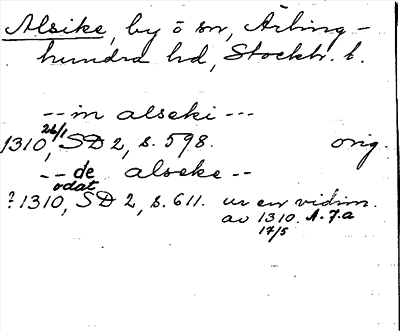 Alsike, by ö sn, Ärling-
hundra hd, Stockh. l.
--in alseki---
1310 26/1, SD 2, s. 598. orig.
--de alseke--
odat
? 1310, SD 2, s. 611. ur en vidim.
av 1310. A.J.a
17/5